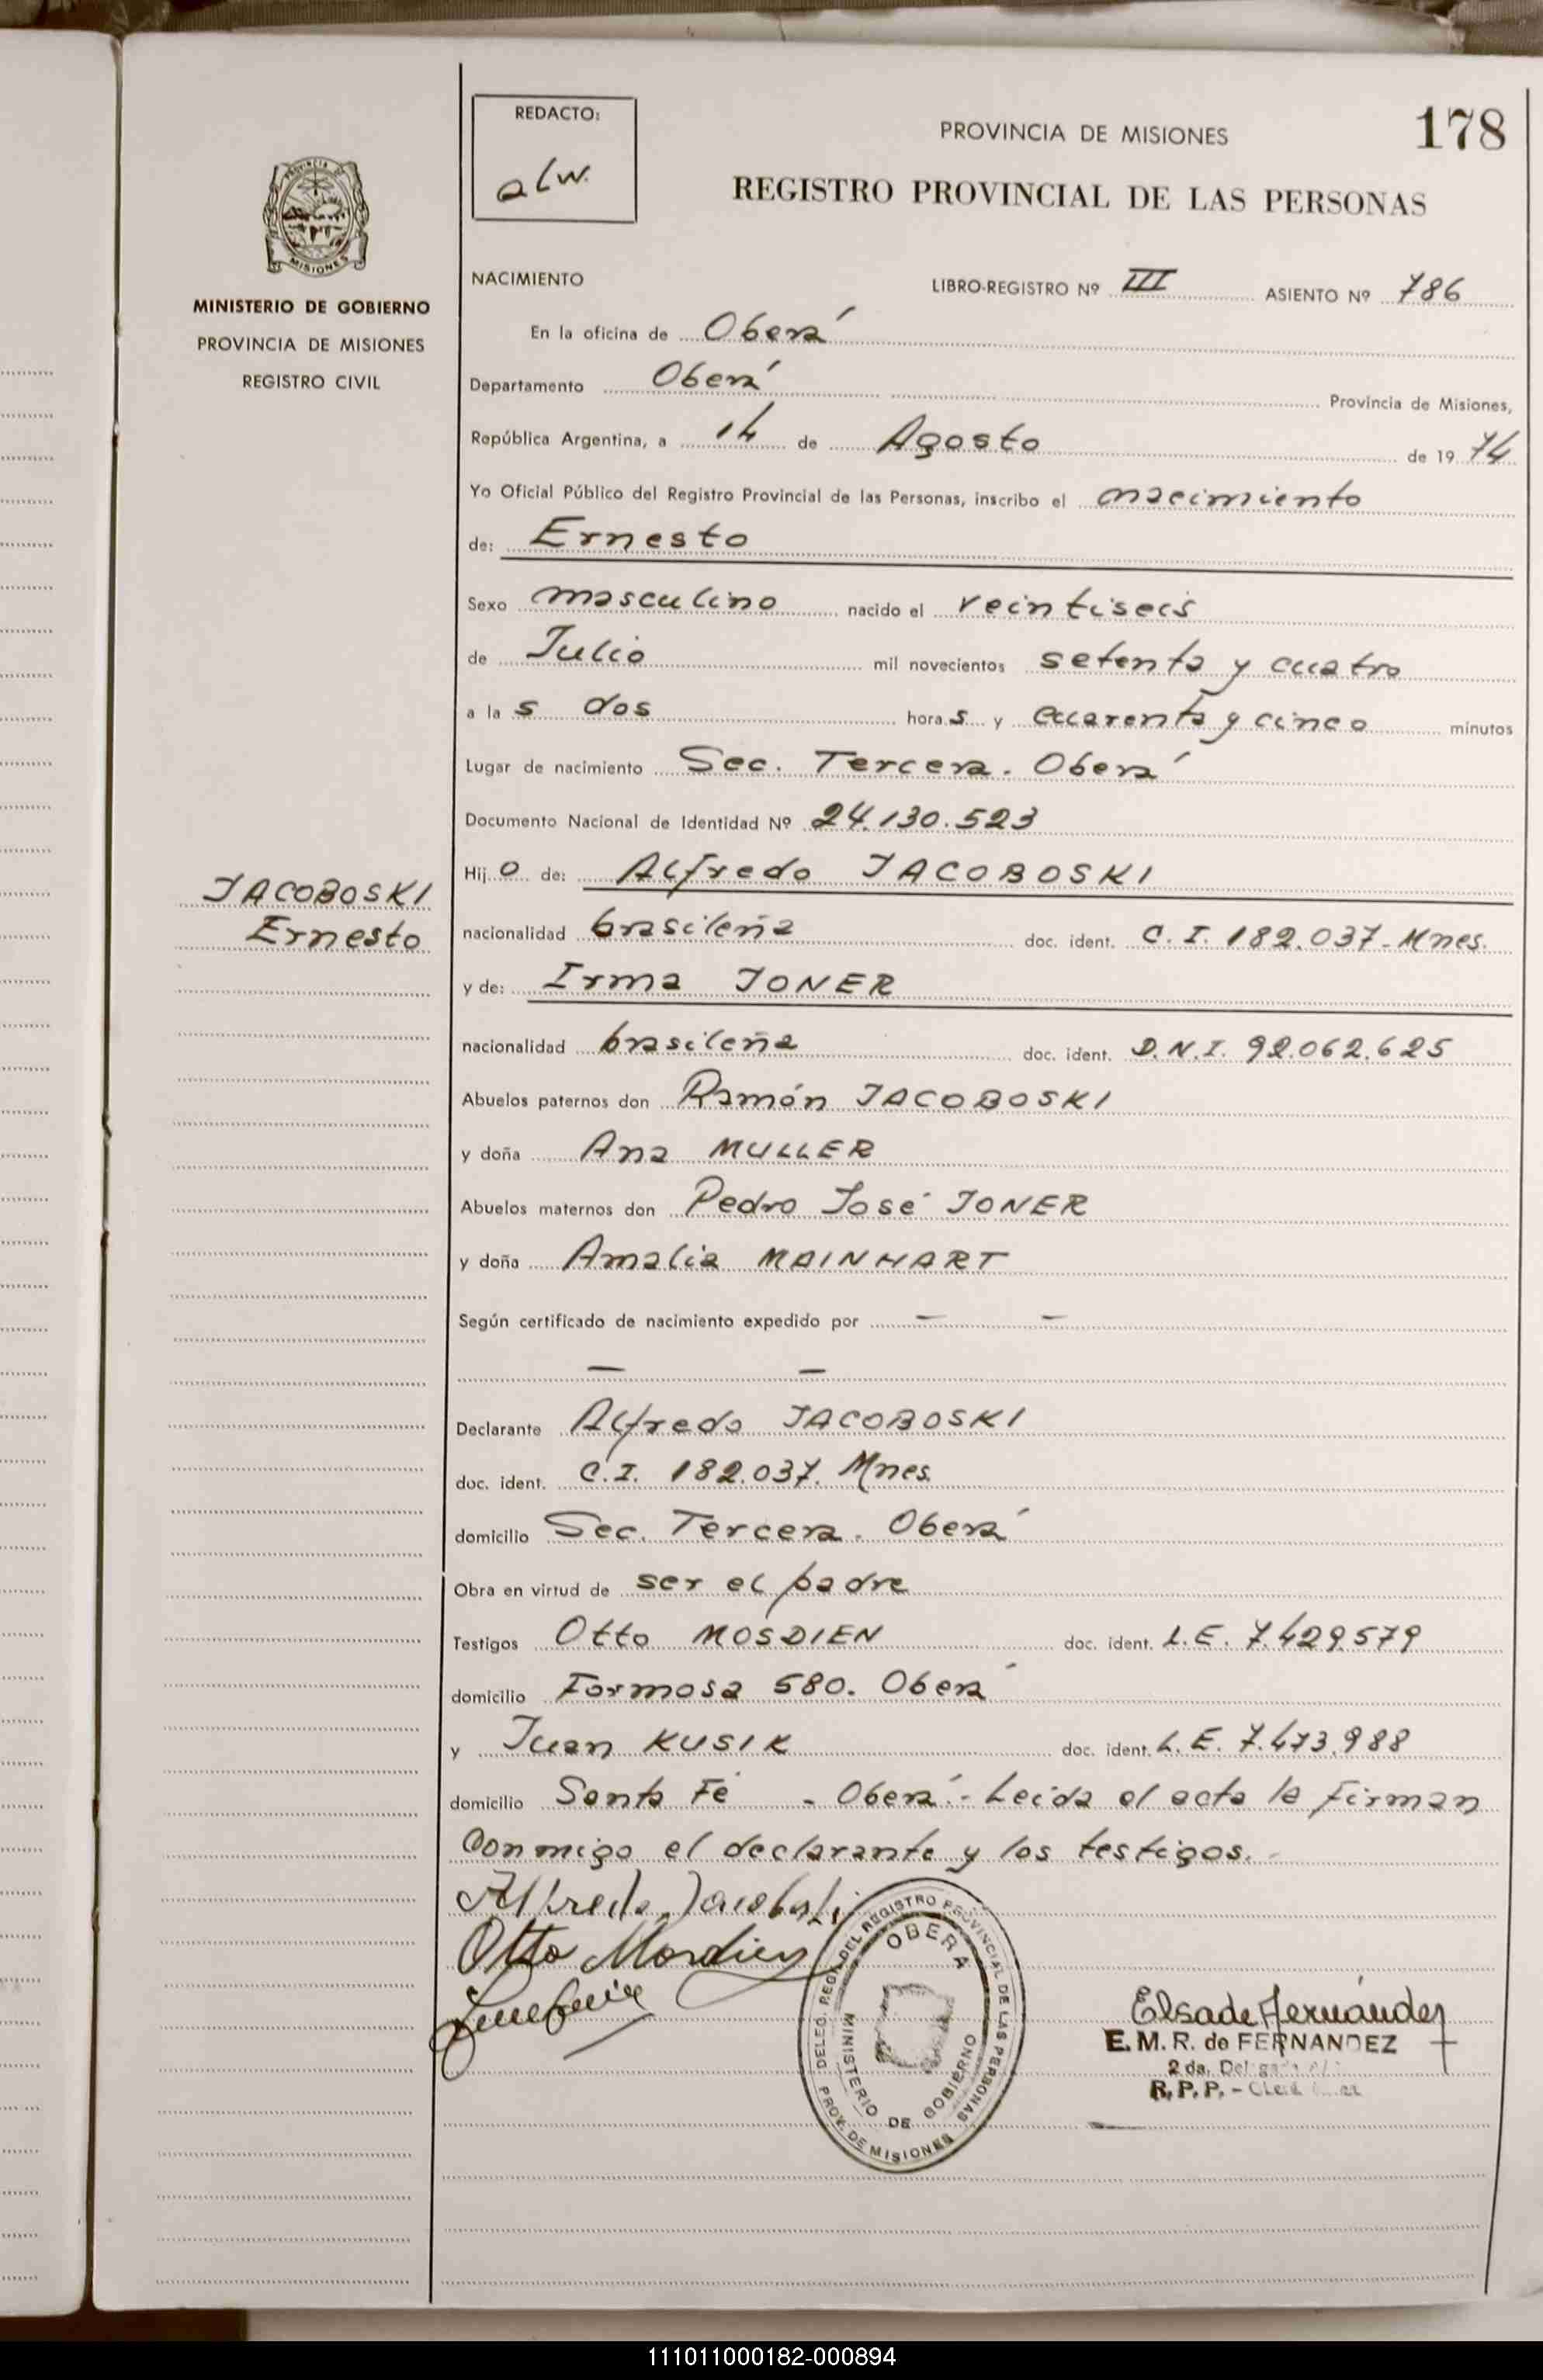 REDACTO:
alw.
PROVINCIA DE MISIONES
178
REGISTRO PROVINCIAL DE LAS PERSONAS
PROVINCIA DE
MISIONES
MINISTERIO DE GOBIERNO
PROVINCIA DE MISIONES
REGISTRO CIVIL
NACIMIENTO LIBRO-REGISTRO Nº III ASIENTO Nº 786
En la oficina de Oberá
Departamento Oberá Provincia de Misiones,
República Argentina, a 14 de Agosto de 1974
Yo Oficial Público del Registro Provincial de las Personas, inscribo el nacimiento
de: Ernesto
Sexo masculino nacido el veintiseis
de Julio mil novecientos setenta y cuatro
a las dos horas y cuarenta y cinco minutos
Lugar de nacimiento Sec. Tercera. Oberá
Documento Nacional de Identidad Nº 24.130.523
Hijo de: Alfredo JACOBOSKI
JACOBOSKI
Ernesto
nacionalidad brasileña doc. ident. C.I. 182.037-Mnes.
y de: Irma JONER
nacionalidad brasileña doc. ident. D.N.I. 92.062.625
Abuelos paternos don Ramón JACOBOSKI
y doña Ana MULLER
Abuelos maternos don Pedro José JONER
y doña Amalia MAINHART
Según certificado de nacimiento expedido por — —
— —
Declarante Alfredo JACOBOSKI
doc. ident. C.I. 182.037. Mnes.
domicilio Sec. Tercera. Oberá
Obra en virtud de ser el padre
Testigos Otto MOSDIEN doc. ident. L.E. 7.429.579
domicilio Formosa 580. Oberá
y Juan KUSIK doc. ident. L.E. 7.473.988
domicilio Santa Fé - Oberá.- Leida el acta la firman
conmigo el declarante y los testigos.-
Alfredo Jacoboski
Otto Mosdien
DELEG. REGL. DEL REGISTRO PROVINCIAL DE LAS PERSONAS
OBERA
MINISTERIO DE GOBIERNO
PROV. DE MISIONES
Elsa de Fernández
E. M. R. de FERNANDEZ
2 da.
R. P. P. -
111011000182-000894